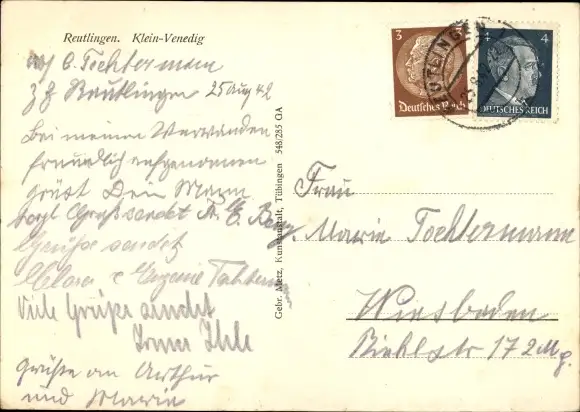 Reutlingen. Klein-Venedig
Tochtermann
z Zt Reutlingen 25 Aug 42
Bei meinen Verwanden
freundlich aufgenommen
grüst Dein Mann
Gruß sendet
Grüße sendet
Clara & Eugenie
Viele Grüße sendet
Irma Ihle
Grüße an Arthur
und Marie
Gebr. Metz, Kunstanstalt, Tübingen 548/285 GA
3
Deutsches Reich
4 4
DEUTSCHES REICH
REUTLINGEN
Frau
Marie Tochtermann
Wiesbaden
str 17 2